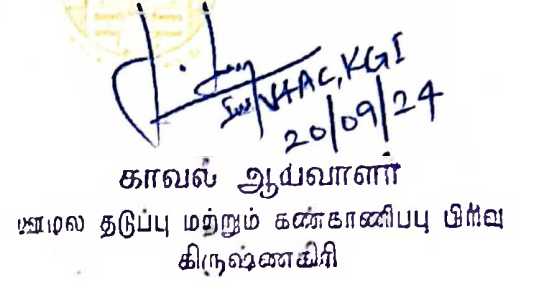 Ins/V&AC, KGI
20/09/24
காவல் ஆய்வாளர்
ஊழல் தடுப்பு மற்றும் கண்காணிப்பு பிரிவு
கிருஷ்ணகிரி